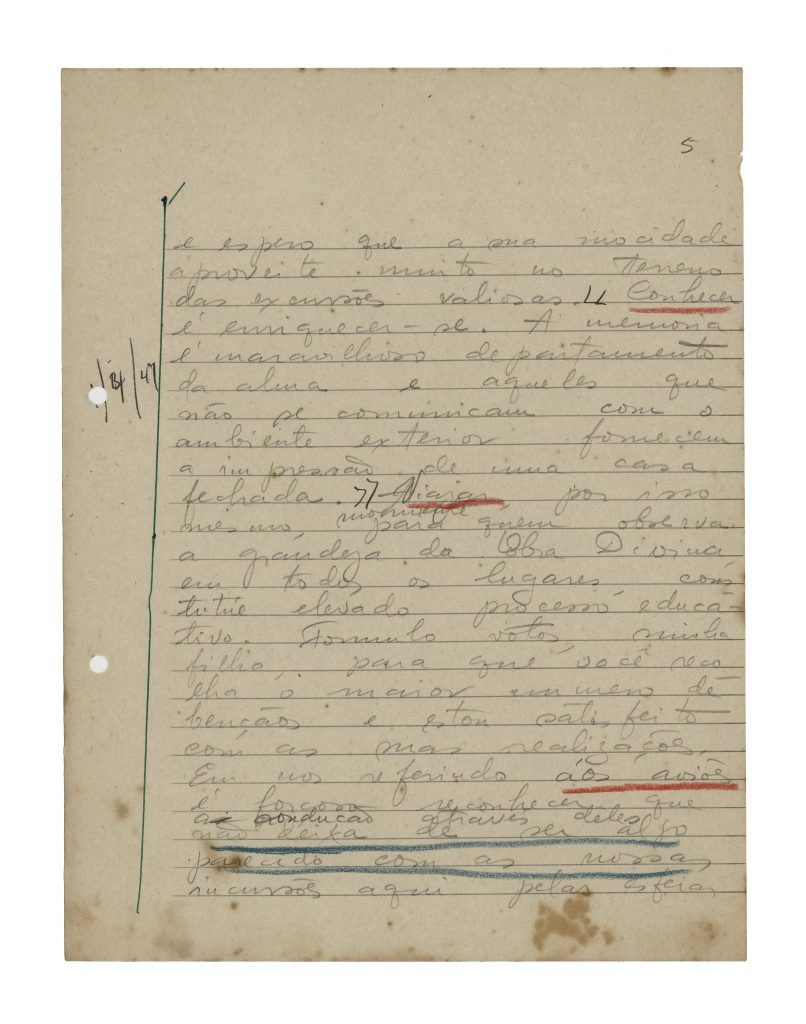 5
e espero que a sua mocidade
aproveite muito no terreno
das excursões valiosas. " Conhecer
é enriquecer-se. A memoria
é maravilhoso departamento
da alma e aqueles que
1/8/47
não se comunicam com o
ambiente exterior fornecem
a impressão de uma casa
fechada. " Viajar, por isso
mesmo, mormente para quem observa
a grandeza da Obra Divina
em todos os lugares, cons
titúe elevado processo educa-
tivo. Formulo votos, minha
filha, para que você reco
lha o maior numero de
bençãos e estou satisfeito
com as suas realizações.
Em nos referindo aos aviões
é forçoso reconhecer que
a condução através deles
não deixa de ser algo
parecido com as nossas
incursões aqui pelas esferas